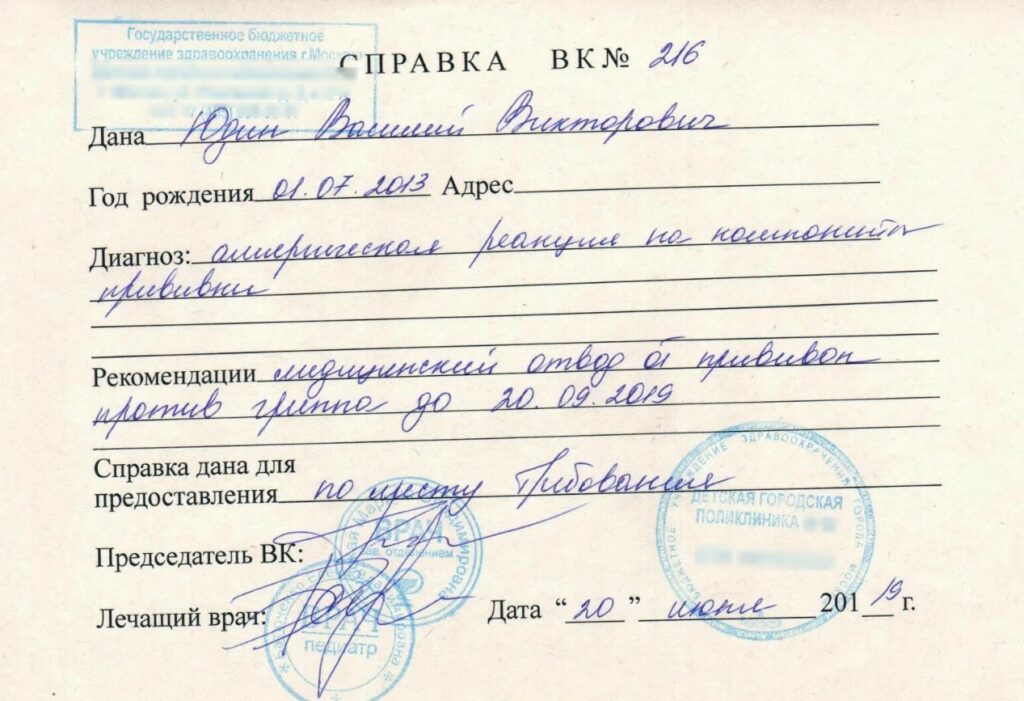 Государственное бюджетное
учреждение здравоохранения г.Москвы
СПРАВКА ВК № 216
Дана Юдин Василий Викторович
Год рождения 01.07.2013 Адрес
Диагноз: аллергическая реакция на компоненты
прививки
Рекомендации медицинский отвод от прививок
против гриппа до 20.09.2019
Справка дана для
предоставления по месту Требования
ВРАЧ
зав. отделением
Председатель ВК:
Лечащий врач:
ВРАЧ
педиатр
Дата “20” июня 2019 г.
УЧРЕЖДЕНИЕ ЗДРАВООХРАНЕНИЯ ГОРОДА
ДЕТСКАЯ ГОРОДСКАЯ
ПОЛИКЛИНИКА